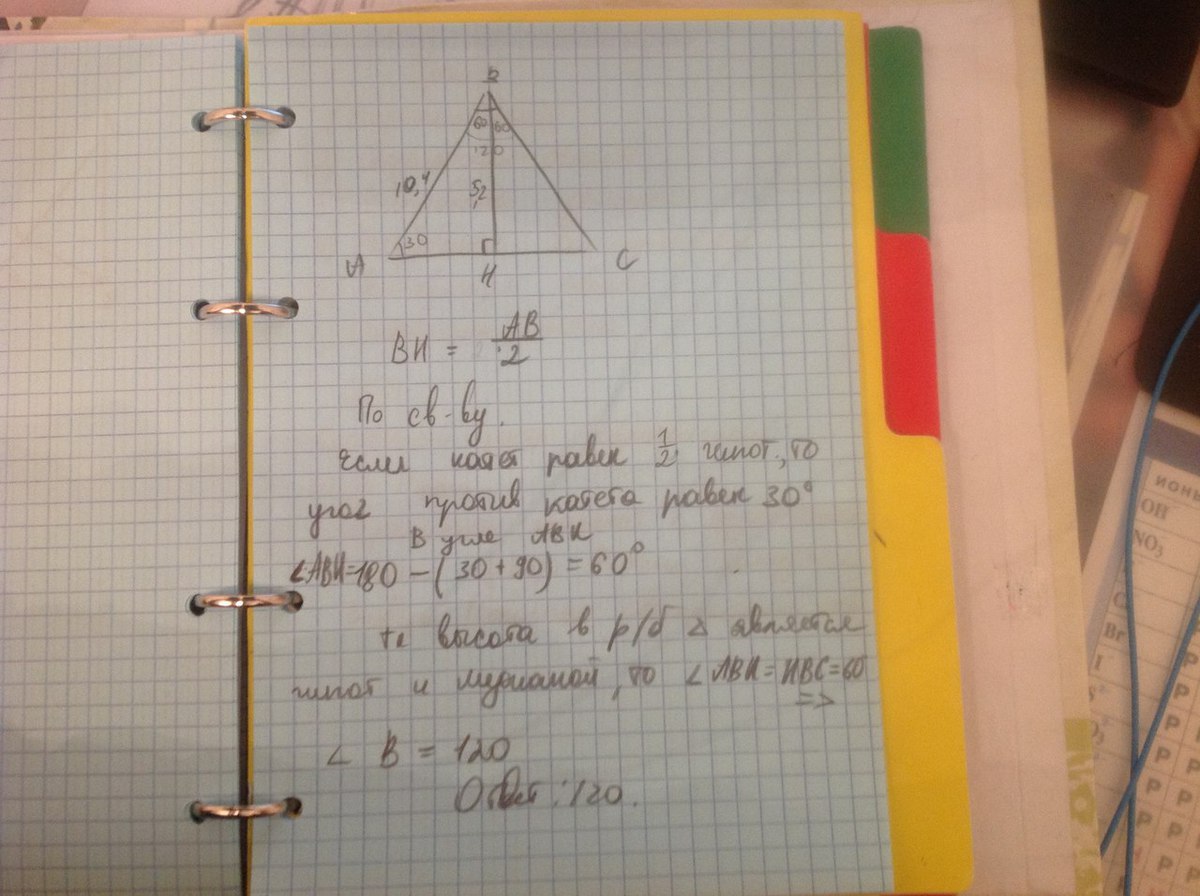 B
60 60
120
10,4
5,2
30
A
H
C
BH = AB
2
По св-ву.
Если катет равен 1/2 гипот., то
угол против катета равен 30°
В угле ABH
∠ABH=180 - (30 + 90) = 60°
тк высота в р/б △ является
гипот и медианой, то ∠ABH = HBC = 60
=>
∠ B = 120
Ответ: 120.
ИОН
OH
NO3
Br
I
S
P
P
P
P
P
P
P